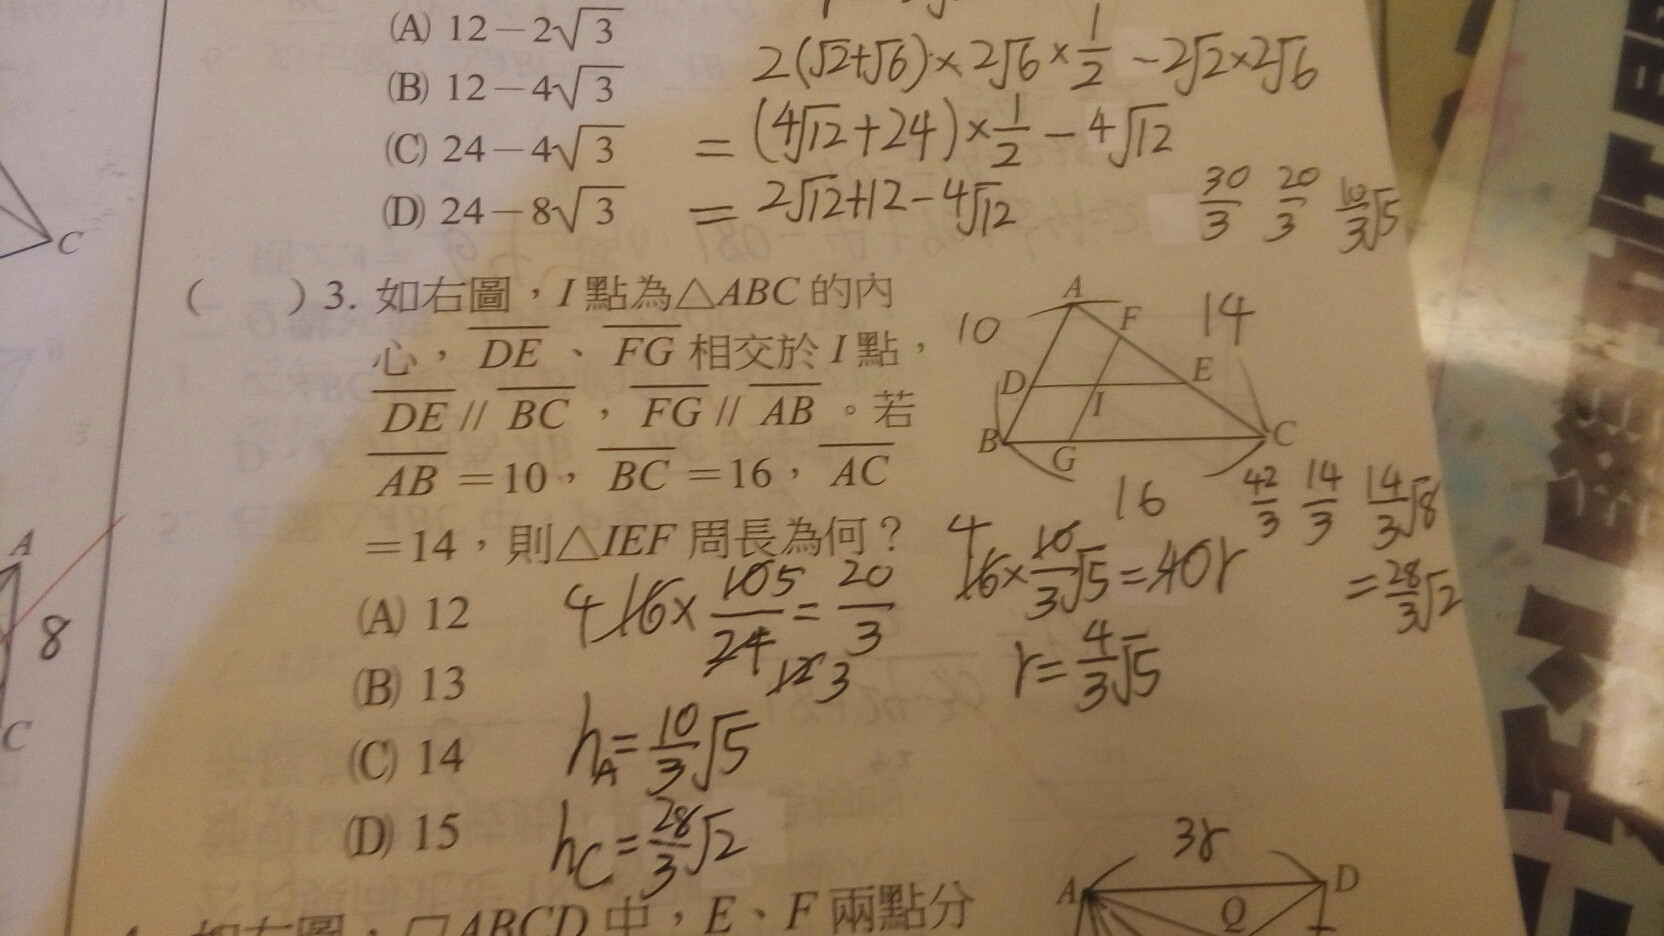 (A) 12－2√3
(B) 12－4√3
(C) 24－4√3
(D) 24－8√3
2(√2+√6)×2√6×1/2 -2√2×2√6
= (4√12+24)×1/2 -4√12
= 2√12+12-4√12
30/3 20/3 10/3√5
( ) 3. 如右圖，I 點為△ABC 的內
心，DE、FG 相交於 I 點，
DE // BC，FG // AB。若
AB＝10，BC＝16，AC
＝14，則△IEF 周長為何？
(A) 12
(B) 13
(C) 14
(D) 15
A
F
14
10
D
E
I
B
G
C
16
42/3 14/3 14/3√8
=28/3√2
4 16×10/3√5=40r
r=4/3√5
4 16×105/24 12 3=20/3
hA=10/3√5
hC=28/3√2
C
A
8
C
如右圖，□ABCD 中，E、F 兩點分
3r
A
D
Q